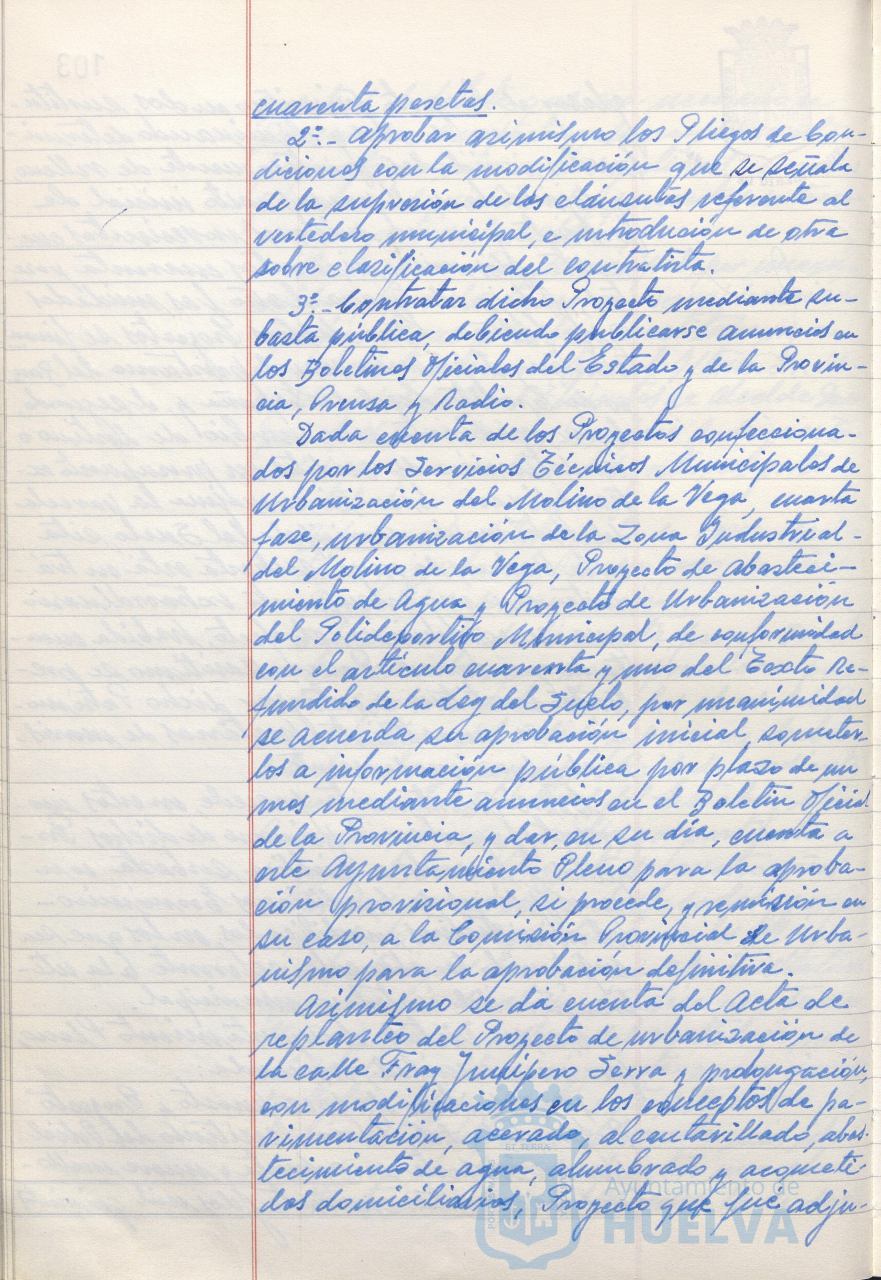 cuarenta pesetas.
2º.- Aprobar asimismo los Pliegos de Con-
diciones con la modificación que se señala
de la supresión de las cláusulas referente al
vertedero municipal, e introducción de otra
sobre clasificación del contratista.
3º.- Contratar dicho Proyecto mediante su-
basta pública, debiendo publicarse anuncios en
los Boletines Oficiales del Estado y de la Provin-
cia, Prensa y Radio.
Dada cuenta de los Proyectos confecciona-
dos por los Servicios Técnicos Municipales de
Urbanización del Molino de la Vega, cuarta
fase, urbanización de la Zona Industrial-
del Molino de la Vega, Proyecto de abasteci-
miento de Agua y Proyecto de Urbanización
del Polideportivo Municipal, de conformidad
con el artículo cuarenta y uno del Texto Re-
fundido de la Ley del Suelo, por unanimidad
se acuerda su aprobación inicial, someter-
los a información pública por plazo de un
mes mediante anuncios en el Boletín Oficial
de la Provincia, y dar, en su día, cuenta a
este Ayuntamiento Pleno para la aproba-
ción provisional, si procede, y remisión en
su caso, a la Comisión Provincial de Urba-
nismo para la aprobación definitiva.
Asimismo se da cuenta del Acta de
replanteo del Proyecto de urbanización de
la calle Fray Junípero Serra y prolongación,
con modificaciones en los conceptos de pa-
vimentación, acerado, alcantarillado, abas-
tecimiento de agua, alumbrado y acometi-
das domiciliarias, Proyecto que fue adju-
Ayuntamiento de
HUELVA